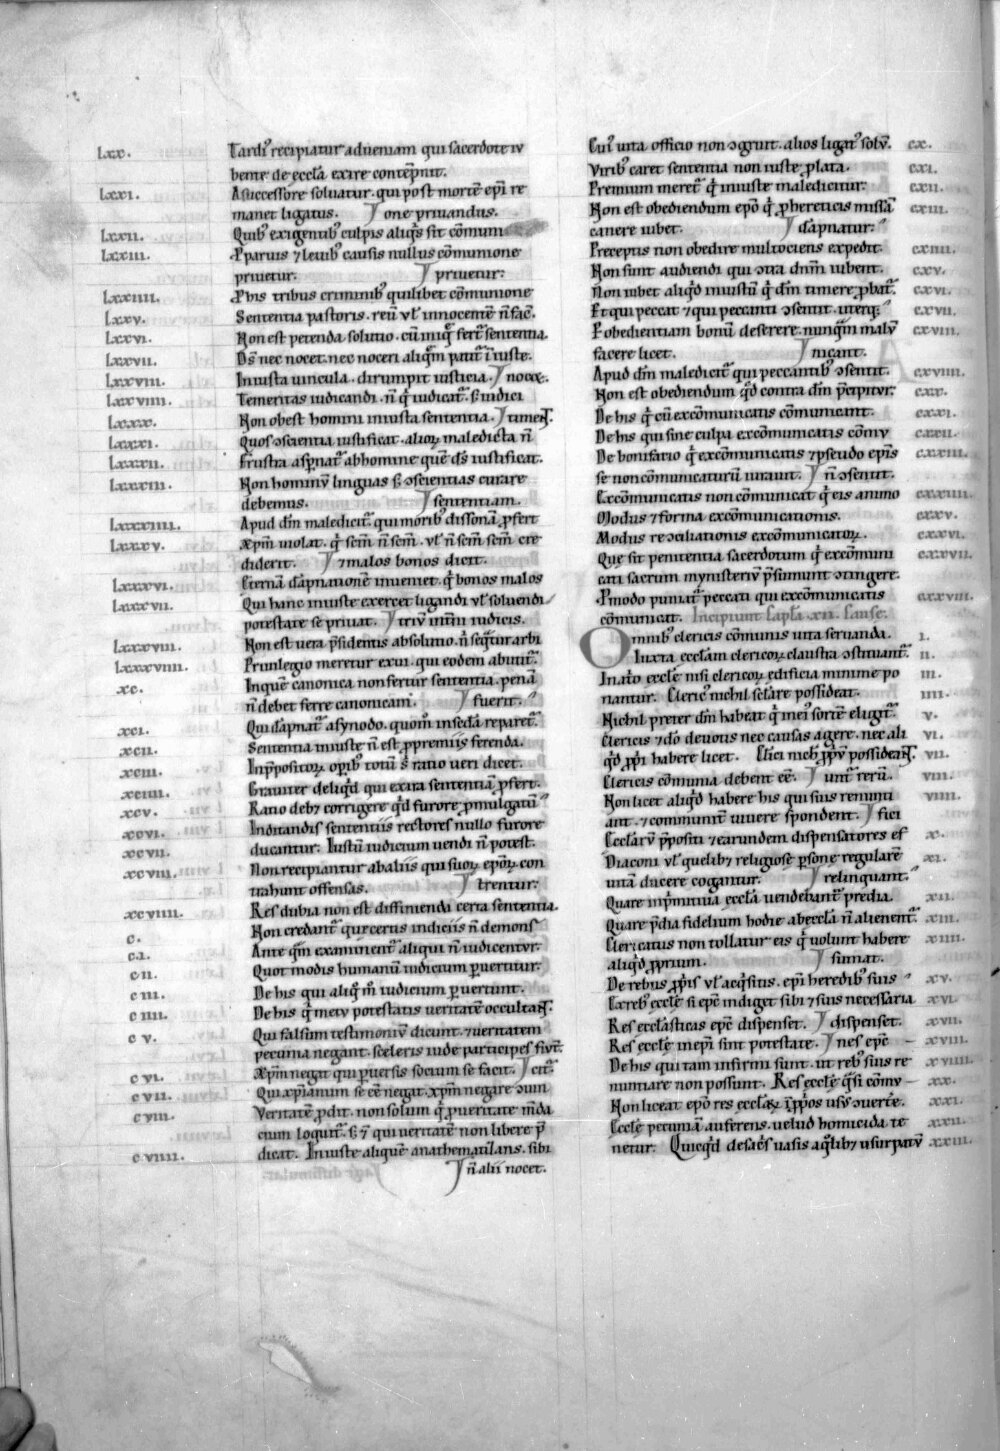 lxx. Tardi᷒ recipiatur ad ueniam qui sacerdote iu
bente de eccl̄a exire contēpnit.
lxxi. A successore soluatur. qui post mortē ep̄i re
manet ligatus. one priuandus.
lxxii. Quib; exigentib; culpis aliq̄s sit cōmuni
lxxiii. P paruis ⁊ leuib; causis nullus cōmunione
priuetur. priuetur.
lxxiiii. P his tribus criminib; quilibet cōmunione
lxxv. Sententia pastoris. reū vl̓ innocentē n̄ fac̄.
lxxvi. Non est petenda solutio. cū iniq̄ fert̄ sententia.
lxxvii. D̄s nec nocet. nec noceri aliq̄m patit̄ iniuste.
lxxviii. Iniusta uincula. dirumpit iusticia. nocēt.
lxxviiii. Temeritas iudicandi. n̄ q̄ iudicat̄. s; iudici
lxxx. Non obest homini iniusta sententia. timet̄.
lxxxi. Quos ↄscientia iustificat. alioꝝ maledicta n̄
lxxxii. Frustra asp̄nat̄ ab homine quē d̄s iustificat.
lxxxiii. Non hominū linguas s; ↄscientias curare
debemus. sententiam.
lxxxiiii. Apud dm̄ maledicit̄ qui morib; dissonā p̄fert
lxxxv. Xp̄m uiolat. q̄ sem̄ n̄ sem̄. vl̓ n̄ sem̄ sem̄ cre
diderit. ⁊ malos bonos dicit.
lxxxvi. Eternā dāpnationē inueniet. q̄ bonos malos
lxxxvii. Qui hanc iniuste exercet ligandi vl̓ soluendi
potestate se priuat. triū in in iudicis.
lxxxviii. Non est uera p̄sidentis absolutio. n̄ seq̄tur arbi
lxxxviiii. Priuilegio meretur exui. qui eodem abutit̄.
xc. In quē canonica non fertur sententia. penā
n̄ debet ferre canonicam. fuerit.
xci. Qui dāpnat̄ a synodo. quom̄ in sedā reparet̄.
xcii. Sententia iniuste n̄ est p̄ premiis ferenda.
xciii. In p̄positoꝝ op̄ib; totū s; ratio ueri dicet.
xciiii. Grauiter deliq̄d qui extra sententiā p̄fert.
xcv. Ratio deb; corrigere q̄d furore p̄mulgatū
xcvi. In dandis sententiis rectores nullo furore
xcvii. ducantur. Iustū iudicium uendi n̄ potest.
xcviii. Non recipiantur ab aliis qui suoꝝ ep̄oꝝ con
trahunt offensas. trentur.
xcviiii. Res dubia non est diffinienda certa sententia.
c. Non credant̄ que certis indiciis n̄ demons
c.i. Ante q̄m examinent̄ aliqui n̄ iudicentur.
c ii. Quot modis humanū iudicium peruertitur.
c iii. De his qui aliq̄ m̄ iudicium peruertunt.
c iiii. De his q̄ metu potestatis ueritatē occultant̄.
c v. Qui falsum testimoniū dicunt. ⁊ ueritatem
pecunia negant. sceleris iude participes fiūt.
c vi. Xp̄m negat qui peruersis socium se facit. cit̄.
c vii. Qui xp̄ianum se eē negat. xp̄m negare ↄuin
c viii. Veritatē p̄dit. non solum q̄ p ueritate mēda
cium loquit̄. s; ⁊ qui ueritatē non libere p̄
c viiii. dicat. Iniuste aliquē anathematizans. sibi
n̄ alii nocet.
Cui᷒ uita officio non ↄgruit. alios ligat̄ solū. cx.
Virib; caret sententia non iuste p̄lata. cxi.
Premium meret̄ q̄ iniuste maledicitur. cxii.
Non est obediendum ep̄o q̄ p hereticis missā cxiii.
canere iubet. dāpnatur.
Preceptis non obedire multociens expedit. cxiiii.
Non sunt audiendi qui ↄtra dnm̄ iubent. cxv.
Non iubet aliq̄d iniustū q̄ dm̄ timere p̄bat̄. cxvi.
Et qui peccat ⁊ qui peccanti ↄsentit. uterq;. cxvii.
P obedientiam bonū deserere. nunq̄m malū cxviii.
facere licet. nicant.
Apud dm̄ maledicit̄ qui peccantib; ↄsentit. cxviiii.
Non est obediendum q̄d contra dm̄ p̄cipitur. cxx.
De his q̄ cū excōmunicatis cōmunicant. cxxi.
De his qui sine culpa excōmunicatis cōmu cxxii.
De bonifatio q̄ excōmunicatis ⁊ pseudo ep̄is cxxiii.
se non cōmunicaturū iurauit. n̄ ↄsentit.
Excōmunicatis non cōmunicat q̄ eis animo cxxiiii.
Modus ⁊ forma excōmunicationis. cxxv.
Modus reↄciliationis excōmunicatoꝝ. cxxvi.
Que sit penitentia sacerdotum q̄ excōmuni cxxvii.
cati sacrum mynisteriū p̄sumunt ↄtingere.
P modo puniat̄ peccati qui excōmunicatis cxxviii.
cōmunicat. Incipiunt Capl̄a .xii. Cause.
Omnib; clericis cōmunis uita seruanda. i.
Iuxta eccl̄am clericoꝝ claustra ↄstituant̄. ii.
In atrio eccl̄e nisi clericoꝝ edificia minime po iii.
nantur. Cleric᷒ nichil sc̄lare possideat. iiii.
Nichil preter dm̄ habeat q̄ in ei᷒ sortē eligit̄. v.
Clericis ⁊ dō deuotis nec causas agere. nec ali vi.
q̄d p̄pri habere licet. Clici nich̓ p̄priū possideāt̄. vii.
Clericis cōmunia debent eē. unt̄ rerū. viii.
Non licet aliq̄d habere his qui suis renunti viiii.
ant. ⁊ communit̄ uiuere spondent. fici
Eccl̄arū p̄positi ⁊ earundem dispensatores ef x.
Diaconi vl̓ quelib; religiose p̄sone regularē xi.
uitā ducere cogantur. relinquant.
Quare in p̄mitiua eccl̄a uendebant̄ predia. xii.
Quare p̄dia fidelium hodie ab eccl̄a n̄ alienent̄. xiii.
Clericatus non tollatur eis q̄ uolunt habere xiiii.
aliq̄d p̄prium. sinnat.
De rebus p̄p̄iis vl̓ acq̄sitis. ep̄i heredib; suis xv.
Ex reb; eccl̄e si ep̄c indiget sibi ⁊ suis necessaria xvi.
Res eccl̄asticas ep̄c dispenset. dispenset. xvii.
Res eccl̄e in ep̄i sint potestate. nes ep̄c xviii.
De his qui tam infirmi sunt. ut reb; suis re xviiii.
nuntiare non possunt. Res eccl̄e q̄si cōmu xx.
Non liceat ep̄o res eccl̄aꝝ in p̄p̄os us᷒ ↄuertē. xxi.
Eccl̄e pecuniā auferens. uelud homicida te xxii.
netur. Quicq̄d de sac̄s uasis a q̄lib; usurpatū xxiii.